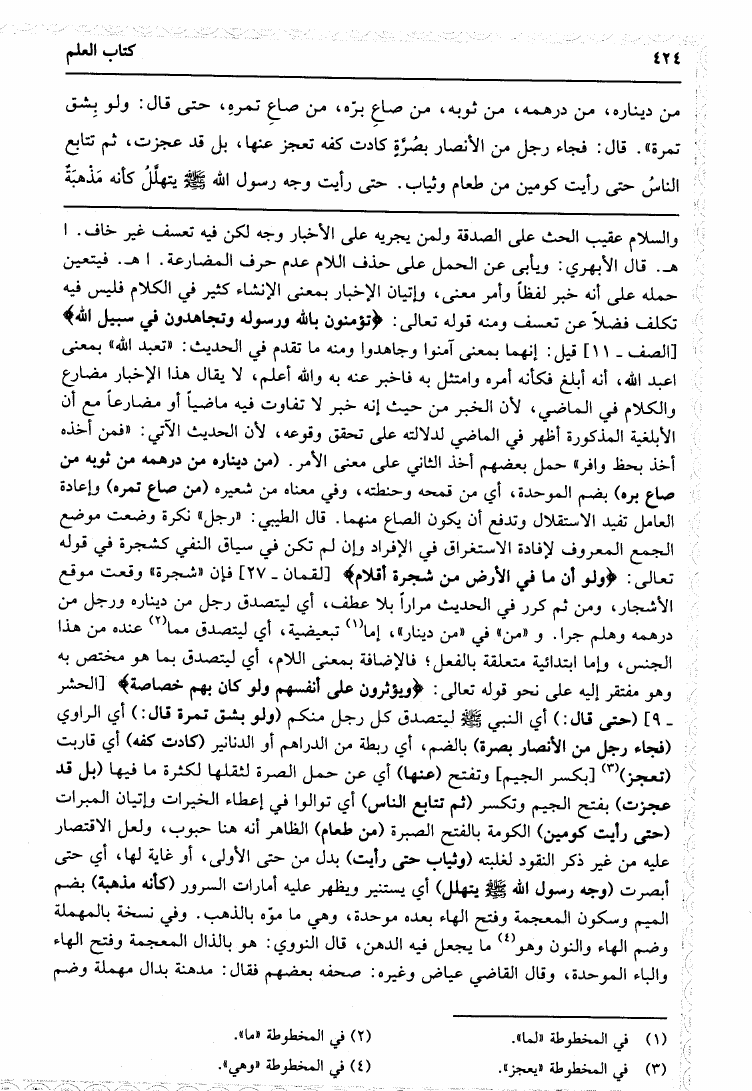 ٤٢٤
كتاب العلم
من ديناره، من درهمه، من ثوبه، من صاعِ برّه، من صاعِ تمرهِ، حتى قال: ولو بِشق
تمرة». قال: فجاء رجل من الأنصار بصُرَّةٍ كادت كفه تعجز عنها، بل قد عجزت، ثم تتابع
الناسُ حتى رأيت كومين من طعام وثياب. حتى رأيت وجه رسول الله ﷺ يتهلَّلُ كأنه مَذْهبَةٌ
والسلام عقيب الحث على الصدقة ولمن يجريه على الأخبار وجه لكن فيه تعسف غير خاف. ا
هـ. قال الأبهري: ويأبى عن الحمل على حذف اللام عدم حرف المضارعة. ا هـ. فيتعين
حمله على أنه خبر لفظاً وأمر معنى، وإتيان الإخبار بمعنى الإنشاء كثير في الكلام فليس فيه
تكلف فضلاً عن تعسف ومنه قوله تعالى: ﴿تؤمنون بالله ورسوله وتجاهدون في سبيل الله﴾
[الصف ـ ١١] قيل: إنهما بمعنى آمنوا وجاهدوا ومنه ما تقدم في الحديث: «تعبد الله» بمعنى
اعبد الله، أنه أبلغ فكأنه أمره وامتثل به فاخبر عنه به والله أعلم، لا يقال هذا الإخبار مضارع
والكلام في الماضي، لأن الخبر من حيث إنه خبر لا تفاوت فيه ماضياً أو مضارعاً مع أن
الأبلغية المذكورة أظهر في الماضي لدلالته على تحقق وقوعه، لأن الحديث الآتي: «فمن أخذه
أخذ بحظ وافر» حمل بعضهم أخذ الثاني على معنى الأمر. (من ديناره من درهمه من ثوبه من
صاع بره) بضم الموحدة، أي من قمحه وحنطته، وفي معناه من شعيره (من صاع تمره) وإعادة
العامل تفيد الاستقلال وتدفع أن يكون الصاع منهما. قال الطيبي: «رجل» نكرة وضعت موضع
الجمع المعروف لإفادة الاستغراق في الإفراد وإن لم تكن في سياق النفي كشجرة في قوله
تعالى: ﴿ولو أن ما في الأرض من شجرة أقلام﴾ [لقمان ـ ٢٧] فإن «شجرة» وقعت موقع
الأشجار، ومن ثم كرر في الحديث مراراً بلا عطف، أي ليتصدق رجل من ديناره ورجل من
درهمه وهلم جرا. و «من» في «من دينار»، إما(١) تبعيضية، أي ليتصدق مما(٢) عنده من هذا
الجنس، وإما ابتدائية متعلقة بالفعل؛ فالإضافة بمعنى اللام، أي ليتصدق بما هو مختص به
وهو مفتقر إليه على نحو قوله تعالى: ﴿ويؤثرون على أنفسهم ولو كان بهم خصاصة﴾ [الحشر
ـ ٩] (حتى قال:) أي النبي ﷺ ليتصدق كل رجل منكم (ولو بشق تمرة قال:) أي الراوي
(فجاء رجل من الأنصار بصرة) بالضم، أي ربطة من الدراهم أو الدنانير (كادت كفه) أي قاربت
(تعجز)(٣) [بكسر الجيم] وتفتح (عنها) أي عن حمل الصرة لثقلها لكثرة ما فيها (بل قد
عجزت) بفتح الجيم وتكسر (ثم تتابع الناس) أي توالوا في إعطاء الخيرات وإتيان المبرات
(حتى رأيت كومين) الكومة بالفتح الصبرة (من طعام) الظاهر أنه هنا حبوب، ولعل الاقتصار
عليه من غير ذكر النقود لغلبته (وثياب حتى رأيت) بدل من حتى الأولى، أو غاية لها، أي حتى
أبصرت (وجه رسول الله ﷺ يتهلل) أي يستنير ويظهر عليه أمارات السرور (كأنه مذهبة) بضم
الميم وسكون المعجمة وفتح الهاء بعده موحدة، وهي ما موّه بالذهب. وفي نسخة بالمهملة
وضم الهاء والنون وهو(٤) ما يجعل فيه الدهن، قال النووي: هو بالذال المعجمة وفتح الهاء
والباء الموحدة، وقال القاضي عياض وغيره: صحفه بعضهم فقال: مدهنة بدال مهملة وضم
(١) في المخطوطة «لما».
(٢) في المخطوطة «ما».
(٣) في المخطوطة «يعجز».
(٤) في المخطوطة «وهي».